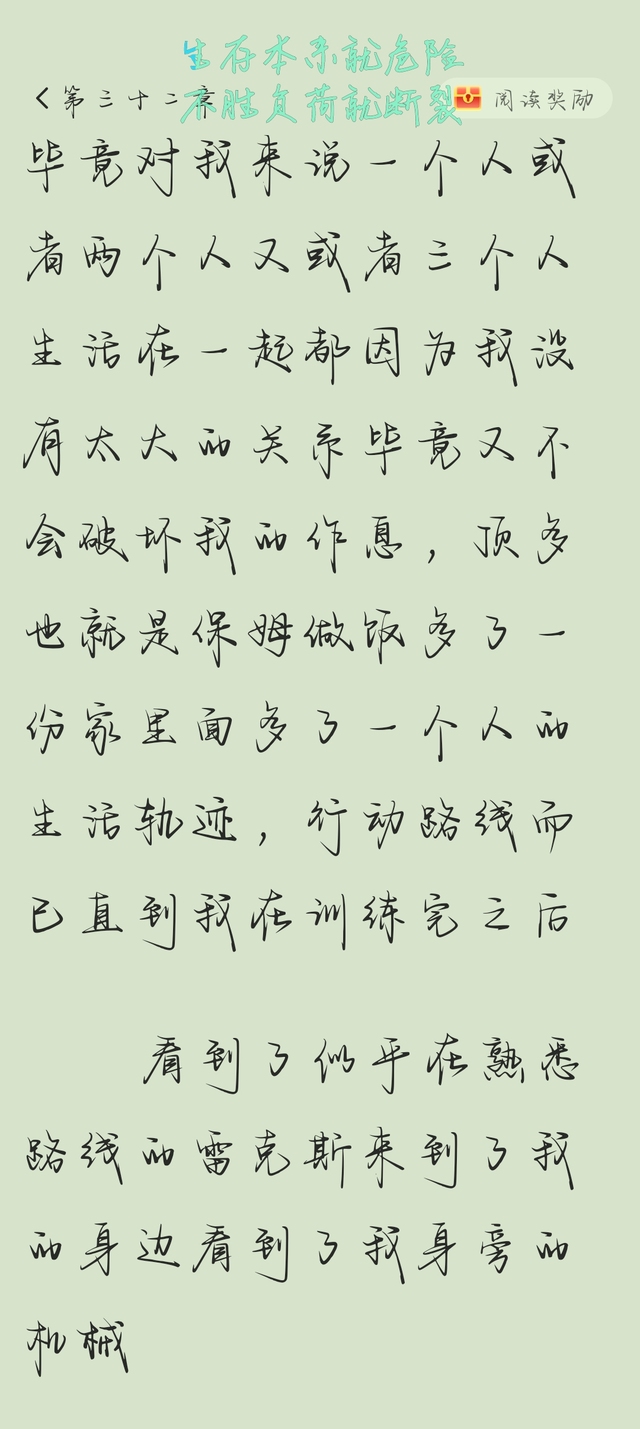 生存本来就危险
第三十二章
不胜负荷就断裂
阅读奖励
毕竟对我来说一个人或
者两个人又或者三个人
生活在一起都因为我没
有太大的关系毕竟又不
会破坏我的作息，顶多
也就是保姆做饭多了一
份家里面多了一个人的
生活轨迹，行动路线而
已直到我在训练完之后
看到了似乎在熟悉
路线的雷克斯来到了我
的身边看到了我身旁的
机械